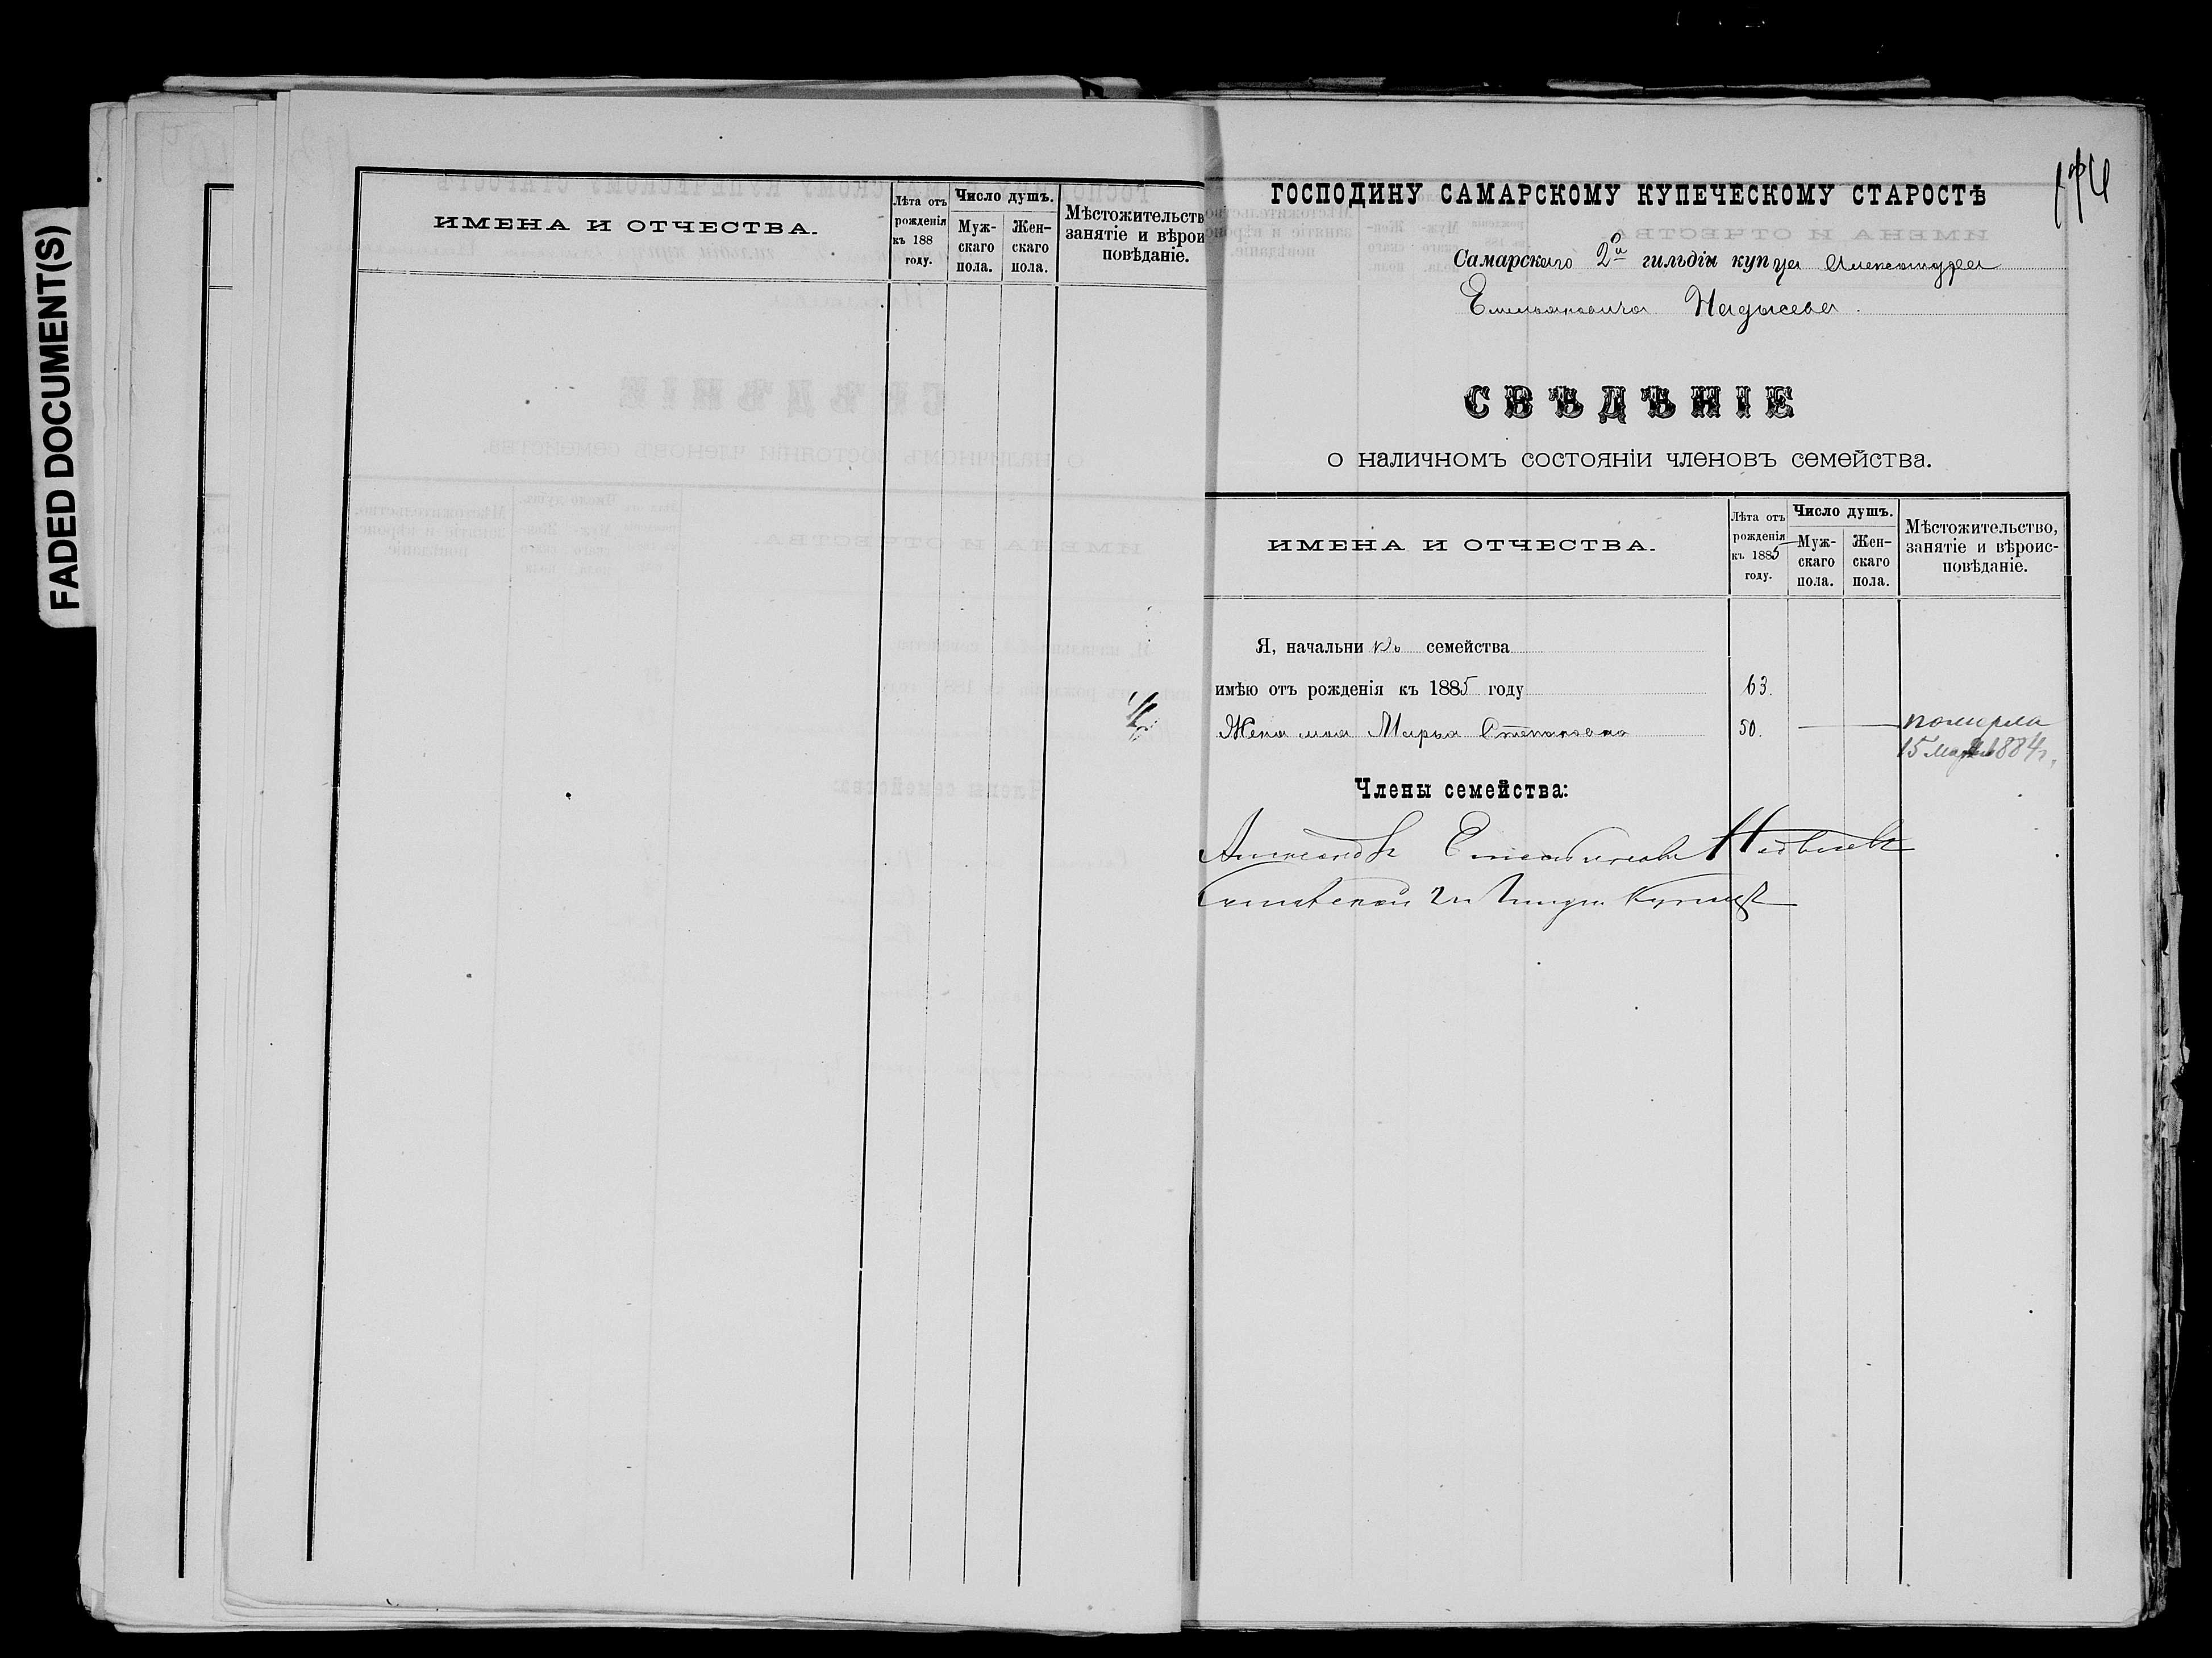 FADED DOCUMENT(S)
ИМЕНА И ОТЧЕСТВА.
Лѣта отъ рожденія къ 188 году.
Число душъ.
Муж-скаго пола.
Жен-скаго пола.
Мѣстожительств
занятіе и вѣрои
повѣданіе.
ГОСПОДИНУ САМАРСКОМУ КУПЕЧЕСКОМУ СТАРОСТѢ
Самарскаго 2й гильдіи купца Александра
Емельяновича
СВѢДѢНІЕ
о наличномъ состояніи членовъ семейства.
ИМЕНА И ОТЧЕСТВА.
Лѣта отъ рожденія къ 1885 году.
Число душъ.
Муж-скаго пола.
Жен-скаго пола.
Мѣстожительство,
занятіе и вѣроис-
повѣданіе.
Я, начальникъ семейства
имѣю отъ рожденія къ 1885 году 63.
Жена моя Марья Степановна 50. померла
15 1884 г.
Члены семейства:
Александръ
2й купецъ